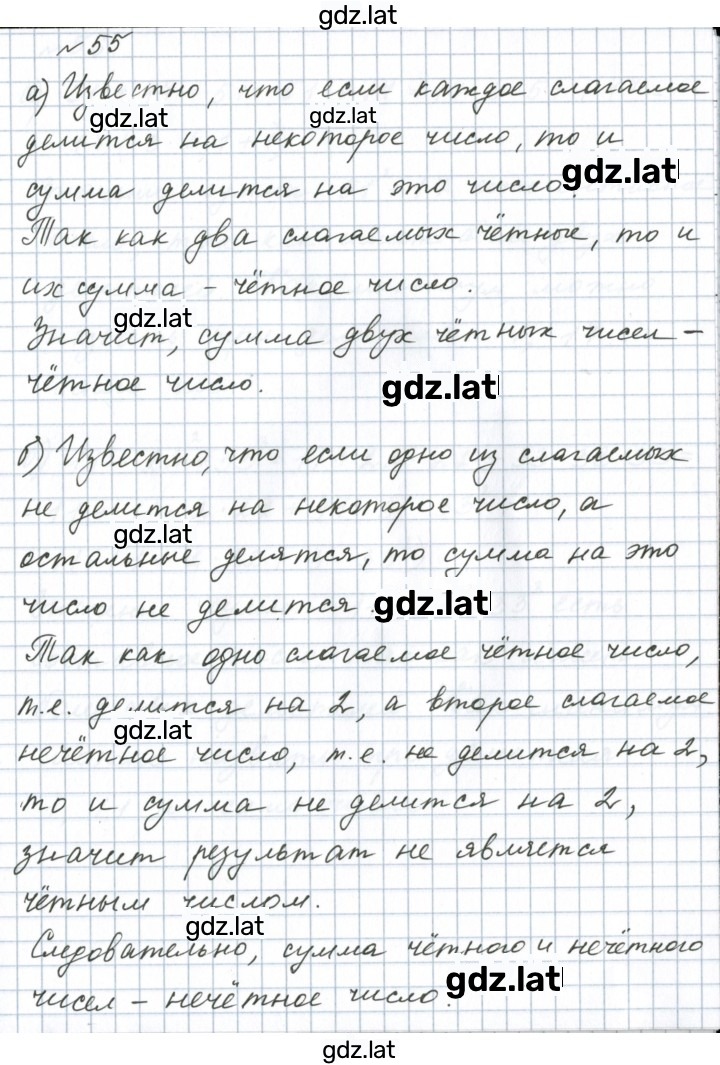 gdz.lat
№ 55
а) Известно, что если каждое слагаемое
gdz.lat gdz.lat
делится на некоторое число, то и
сумма делится на это число.
gdz.lat
Так как два слагаемых чётные, то и
их сумма – чётное число.
gdz.lat
Значит, сумма двух чётных чисел –
чётное число.
gdz.lat
б) Известно, что если одно из слагаемых
не делится на некоторое число, а
gdz.lat
остальные делятся, то сумма на это
число не делится.
gdz.lat
Так как одно слагаемое чётное число,
т.е. делится на 2, а второе слагаемое
gdz.lat
нечётное число, т.е. не делится на 2,
то и сумма не делится на 2,
значит результат не является
чётным числом.
gdz.lat
Следовательно, сумма чётного и нечётного
чисел – нечётное число.
gdz.lat
gdz.lat